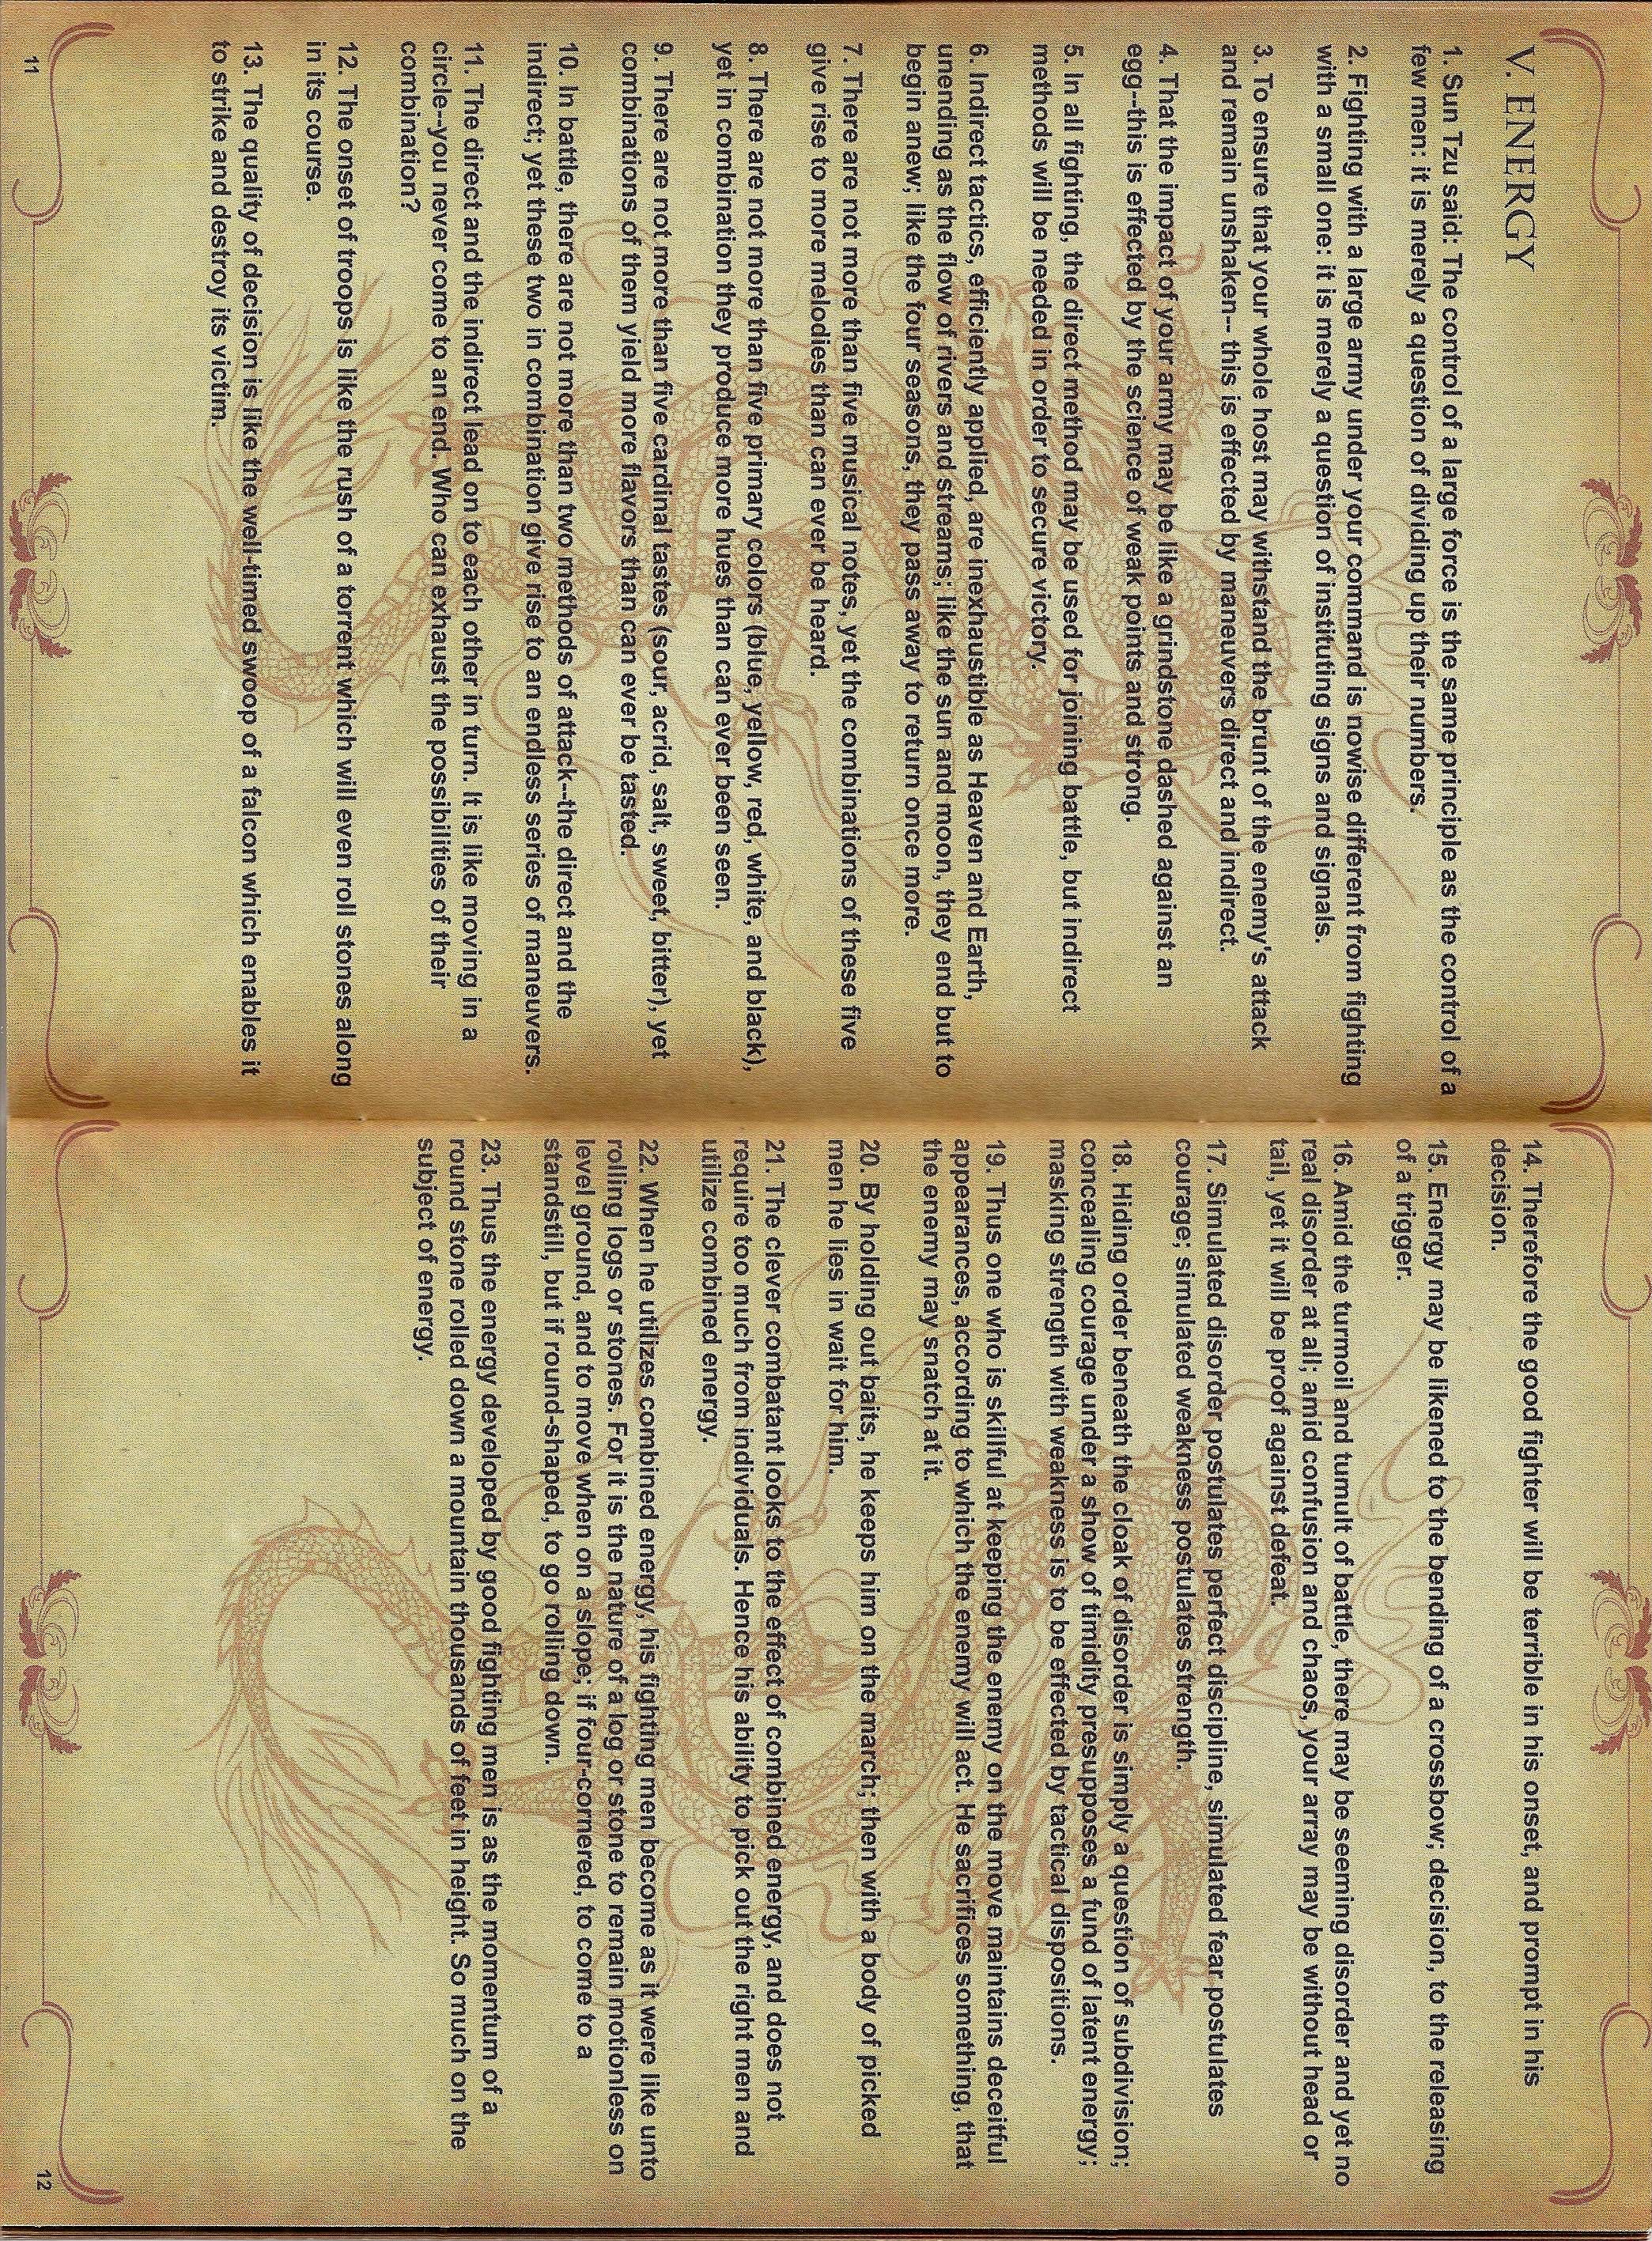 V. ENERGY
1. Sun Tzu said: The control of a large force is the same principle as the control of a
few men: it is merely a question of dividing up their numbers.
2. Fighting with a large army under your command is nowise different from fighting
with a small one: it is merely a question of instituting signs and signals.
3. To ensure that your whole host may withstand the brunt of the enemy's attack
and remain unshaken-- this is effected by maneuvers direct and indirect.
4. That the impact of your army may be like a grindstone dashed against an
egg--this is effected by the science of weak points and strong.
5. In all fighting, the direct method may be used for joining battle, but indirect
methods will be needed in order to secure victory.
6. Indirect tactics, efficiently applied, are inexhaustible as Heaven and Earth,
unending as the flow of rivers and streams; like the sun and moon, they end but to
begin anew; like the four seasons, they pass away to return once more.
7. There are not more than five musical notes, yet the combinations of these five
give rise to more melodies than can ever be heard.
8. There are not more than five primary colors (blue, yellow, red, white, and black),
yet in combination they produce more hues than can ever been seen.
9. There are not more than five cardinal tastes (sour, acrid, salt, sweet, bitter), yet
combinations of them yield more flavors than can ever be tasted.
10. In battle, there are not more than two methods of attack--the direct and the
indirect; yet these two in combination give rise to an endless series of maneuvers.
11. The direct and the indirect lead on to each other in turn. It is like moving in a
circle--you never come to an end. Who can exhaust the possibilities of their
combination?
12. The onset of troops is like the rush of a torrent which will even roll stones along
in its course.
13. The quality of decision is like the well-timed swoop of a falcon which enables it
to strike and destroy its victim.
11
14. Therefore the good fighter will be terrible in his onset, and prompt in his
decision.
15. Energy may be likened to the bending of a crossbow; decision, to the releasing
of a trigger.
16. Amid the turmoil and tumult of battle, there may be seeming disorder and yet no
real disorder at all; amid confusion and chaos, your array may be without head or
tail, yet it will be proof against defeat.
17. Simulated disorder postulates perfect discipline, simulated fear postulates
courage; simulated weakness postulates strength.
18. Hiding order beneath the cloak of disorder is simply a question of subdivision;
concealing courage under a show of timidity presupposes a fund of latent energy;
masking strength with weakness is to be effected by tactical dispositions.
19. Thus one who is skillful at keeping the enemy on the move maintains deceitful
appearances, according to which the enemy will act. He sacrifices something, that
the enemy may snatch at it.
20. By holding out baits, he keeps him on the march; then with a body of picked
men he lies in wait for him.
21. The clever combatant looks to the effect of combined energy, and does not
require too much from individuals. Hence his ability to pick out the right men and
utilize combined energy.
22. When he utilizes combined energy, his fighting men become as it were like unto
rolling logs or stones. For it is the nature of a log or stone to remain motionless on
level ground, and to move when on a slope; if four-cornered, to come to a
standstill, but if round-shaped, to go rolling down.
23. Thus the energy developed by good fighting men is as the momentum of a
round stone rolled down a mountain thousands of feet in height. So much on the
subject of energy.
12